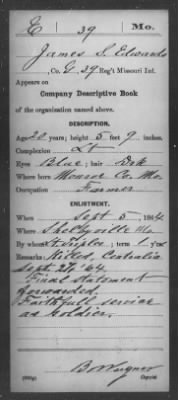 E 39 Mo.
James S. Edwards
, Co. G, 39 Reg't Missouri Inf.
Appears on
Company Descriptive Book
of the organization named above.
DESCRIPTION.
Age 20 years; height 5 feet 9 inches.
Complexion Lt
Eyes Blue; hair Drk
Where born Monroe Co. Mo.
Occupation Farmer
ENLISTMENT.
When Sept 5, 1864
Where Shelbyville Mo.
By whom ; term 1 y'rs
Remarks: Killed, Centralia
Sept. 27, 64.
Final Statement
forwarded.
Faithfull service
as Soldier.
Copyist